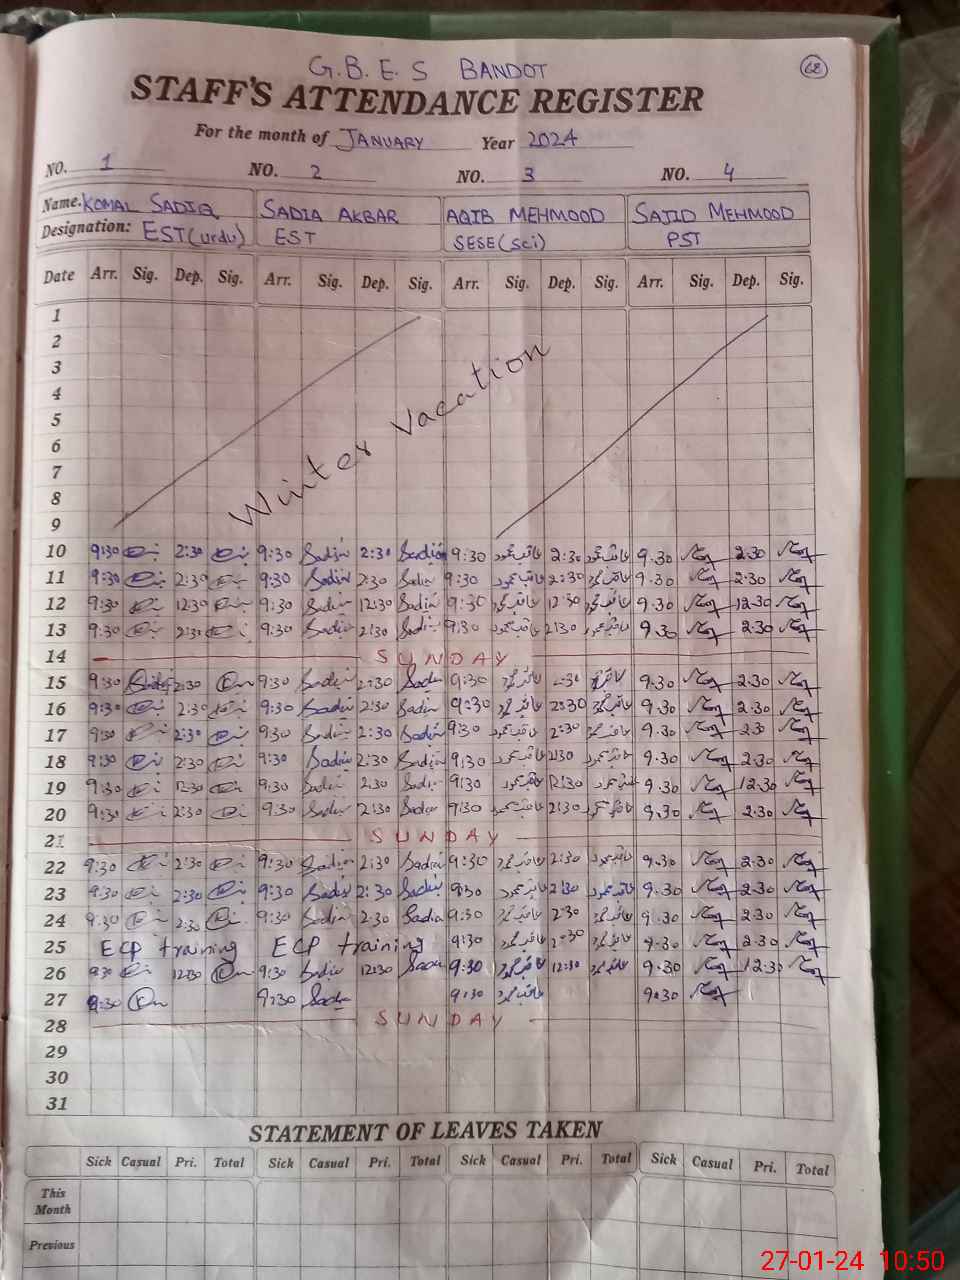 G.B.E.S BANDOT
68
STAFF'S ATTENDANCE REGISTER
For the month of JANUARY Year 2024
NO. 1 NO. 2 NO. 3 NO. 4
Name. KOMAL SADIQ SADIA AKBAR AQIB MEHMOOD SAJID MEHMOOD
Designation: EST(urdu) EST SESE(sci) PST
Date Arr. Sig. Dep. Sig. Arr. Sig. Dep. Sig. Arr. Sig. Dep. Sig. Arr. Sig. Dep. Sig.
1
2
3
4
5
6
7
8
9
Winter Vacation
10 9:30 2:30 9:30 Sadia 2:30 Sadia 9:30 عاقب محمود 2:30 عاقب محمود 9.30 2.30
11 9:30 2:30 9:30 Sadia 2:30 Sadia 9:30 عاقب محمود 2:30 عاقب محمود 9.30 2.30
12 9:30 12:30 9:30 Sadia 12:30 Sadia 9:30 عاقب محمود 12:30 عاقب محمود 9.30 12.30
13 9:30 2:30 9:30 Sadia 2:30 Sadia 9:30 عاقب محمود 2:30 عاقب محمود 9.30 2.30
14 SUNDAY
15 9:30 2:30 9:30 Sadia 2:30 Sadia 9:30 عاقب محمود 2:30 9.30 2.30
16 9:30 2:30 9:30 Sadia 2:30 Sadia 9:30 عاقب محمود 2:30 عاقب محمود 9.30 2.30
17 9:30 2:30 9:30 Sadia 2:30 Sadia 9:30 عاقب محمود 2:30 عاقب محمود 9.30 2.30
18 9:30 2:30 9:30 Sadia 2:30 Sadia 9:30 عاقب محمود 2:30 عاقب محمود 9.30 2.30
19 9:30 12:30 9:30 Sadia 2:30 Sadia 9:30 عاقب محمود 12:30 عاقب محمود 9.30 12.30
20 9:30 2:30 9:30 Sadia 2:30 Sadia 9:30 عاقب محمود 2:30 عاقب محمود 9.30 2.30
21 SUNDAY
22 9:30 2:30 9:30 Sadia 2:30 Sadia 9:30 عاقب محمود 2:30 عاقب محمود 9.30 2.30
23 9:30 2:30 9:30 Sadia 2:30 Sadia 9:30 عاقب محمود 2:30 عاقب محمود 9.30 2.30
24 9:30 2:30 9:30 Sadia 2:30 Sadia 9:30 عاقب محمود 2:30 عاقب محمود 9.30 2.30
25 ECP training ECP training 9:30 عاقب محمود 2:30 عاقب محمود 9.30 2.30
26 9:30 12:30 9:30 Sadia 12:30 Sadia 9:30 عاقب محمود 12:30 عاقب محمود 9.30 12.30
27 9:30 9:30 Sadia 9:30 عاقب محمود 9.30
28 SUNDAY
29
30
31
STATEMENT OF LEAVES TAKEN
Sick Casual Pri. Total Sick Casual Pri. Total Sick Casual Pri. Total Sick Casual Pri. Total
This
Month
Previous
27-01-24 10:50